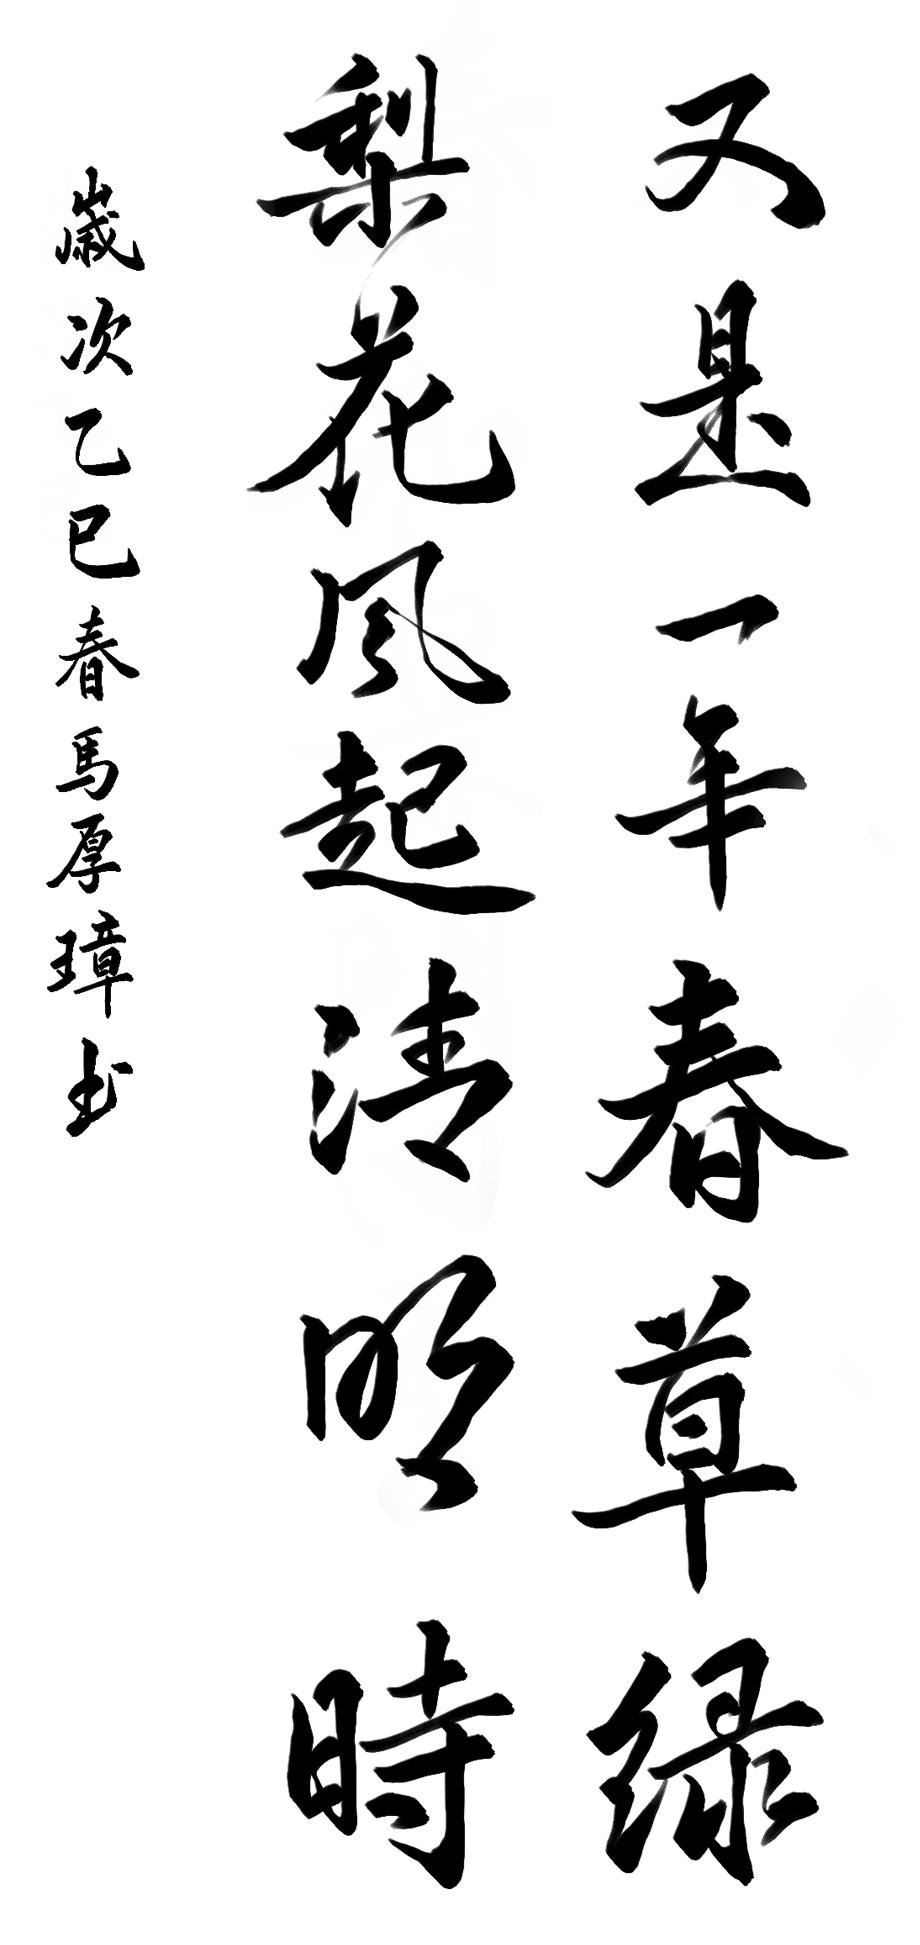 又是一年春草绿
梨花风起清明時
嵗次乙巳春馬厚璋书